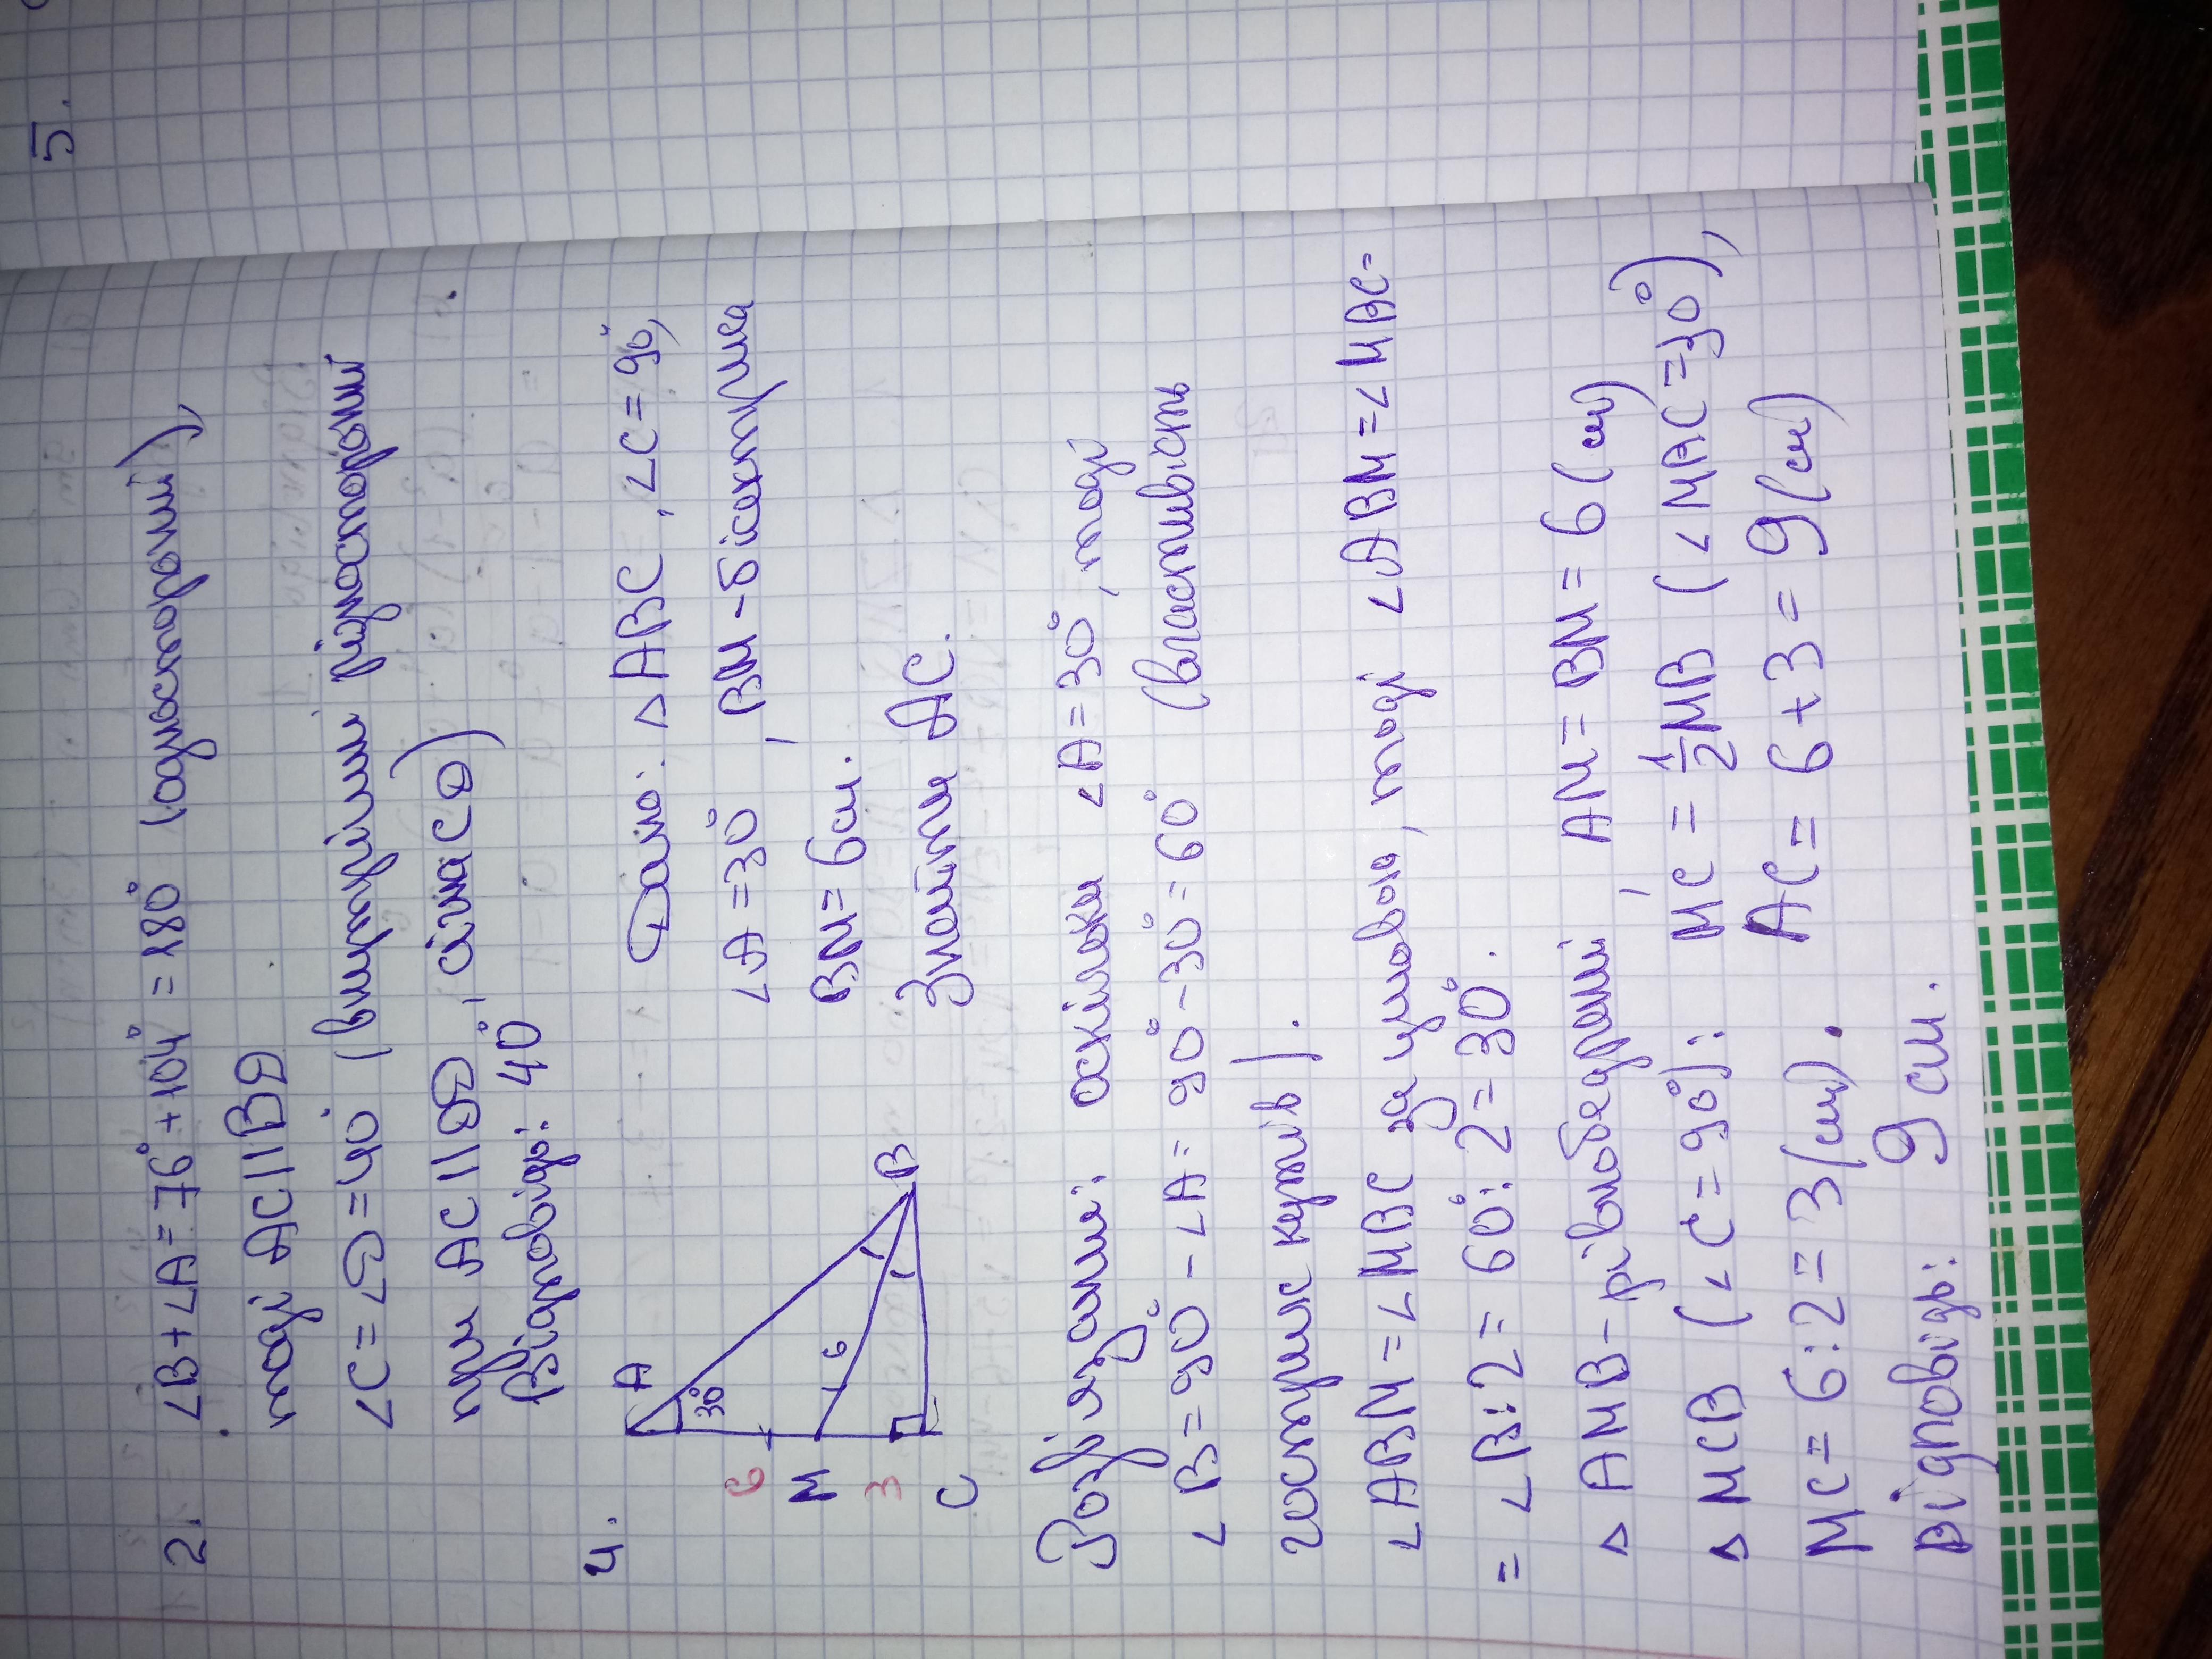 5.
2. ∠B+∠A=76°+104°=180° (односторонні),
тоді AC||BD
∠C=∠D=40° (внутрішні різносторонні
при AC||BD, січна CD)
Відповідь: 40°
4. Дано: △ABC, ∠C=90°,
∠A=30°, BM-бісектриса
BM=6см.
Знайти AC.
A
30°
6
6
M
3
C
B
Розв'язання: оскільки ∠A=30°, тоді
∠B=90°-∠A=90°-30°=60° (властивість
гострих кутів).
∠ABM=∠MBC за умовою, тоді ∠ABM=∠MAC=
=∠B:2=60°:2=30°.
△AMB-рівнобедрений, AM=BM=6(см)
△MCB (∠C=90°): MC=1/2MB (∠MAC=30°),
MC=6:2=3(см). AC=6+3=9(см)
Відповідь: 9 см.